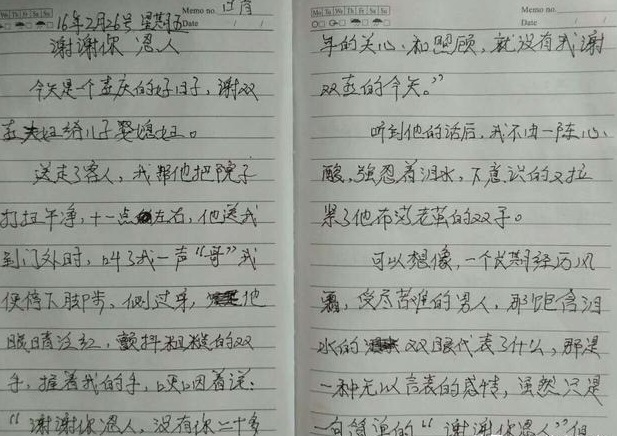 Mo Tu We Th Fr Sa Su
Memo no.
Date / /
16年2月26号 星期五
谢谢你 恩人
今天是一个喜庆的好日子,谢双
喜夫妇给儿子娶媳妇。
送走了客人,我帮他把院子
打扫干净,十一点左右,他送我
到门外时,叫了我一声“哥”我
便停下脚步、侧过身,他
眼睛泛红,颤抖粗糙的双
手,握着我的手,哽咽着说:
“谢谢你恩人。没有你二十多
Mo Tu We Th Fr Sa Su
Memo no.
Date / /
年的关心、和照顾,就没有我谢
双喜的今天。”
听到他的话后,我不由一阵心
酸,强忍着泪水,下意识的又拉
紧了他布满老茧的双手。
可以想像,一个长期经历风
霜,受尽苦难的男人,那饱含泪
水的双眼代表了什么,那是
一种无以言表的感情,虽然只是
一句简单的“谢谢你恩人”但